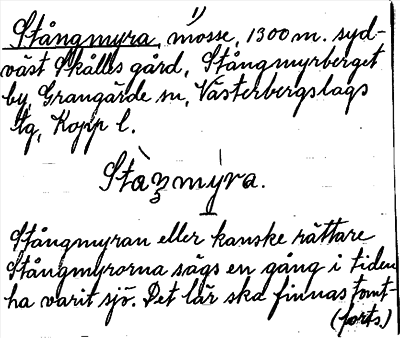 Stångmyra, mosse, 1300 m. syd-
väst Skålles gård, Stångmyrberget
by, Grangärde sn, Västerbergslags
tg, Kopp l.
Stàꞑmýra.
Stångmyran eller kanske rättare
Stångmyrorna sägs en gång i tiden
ha varit sjö. Det lär ska finnas tomt-
(forts.)